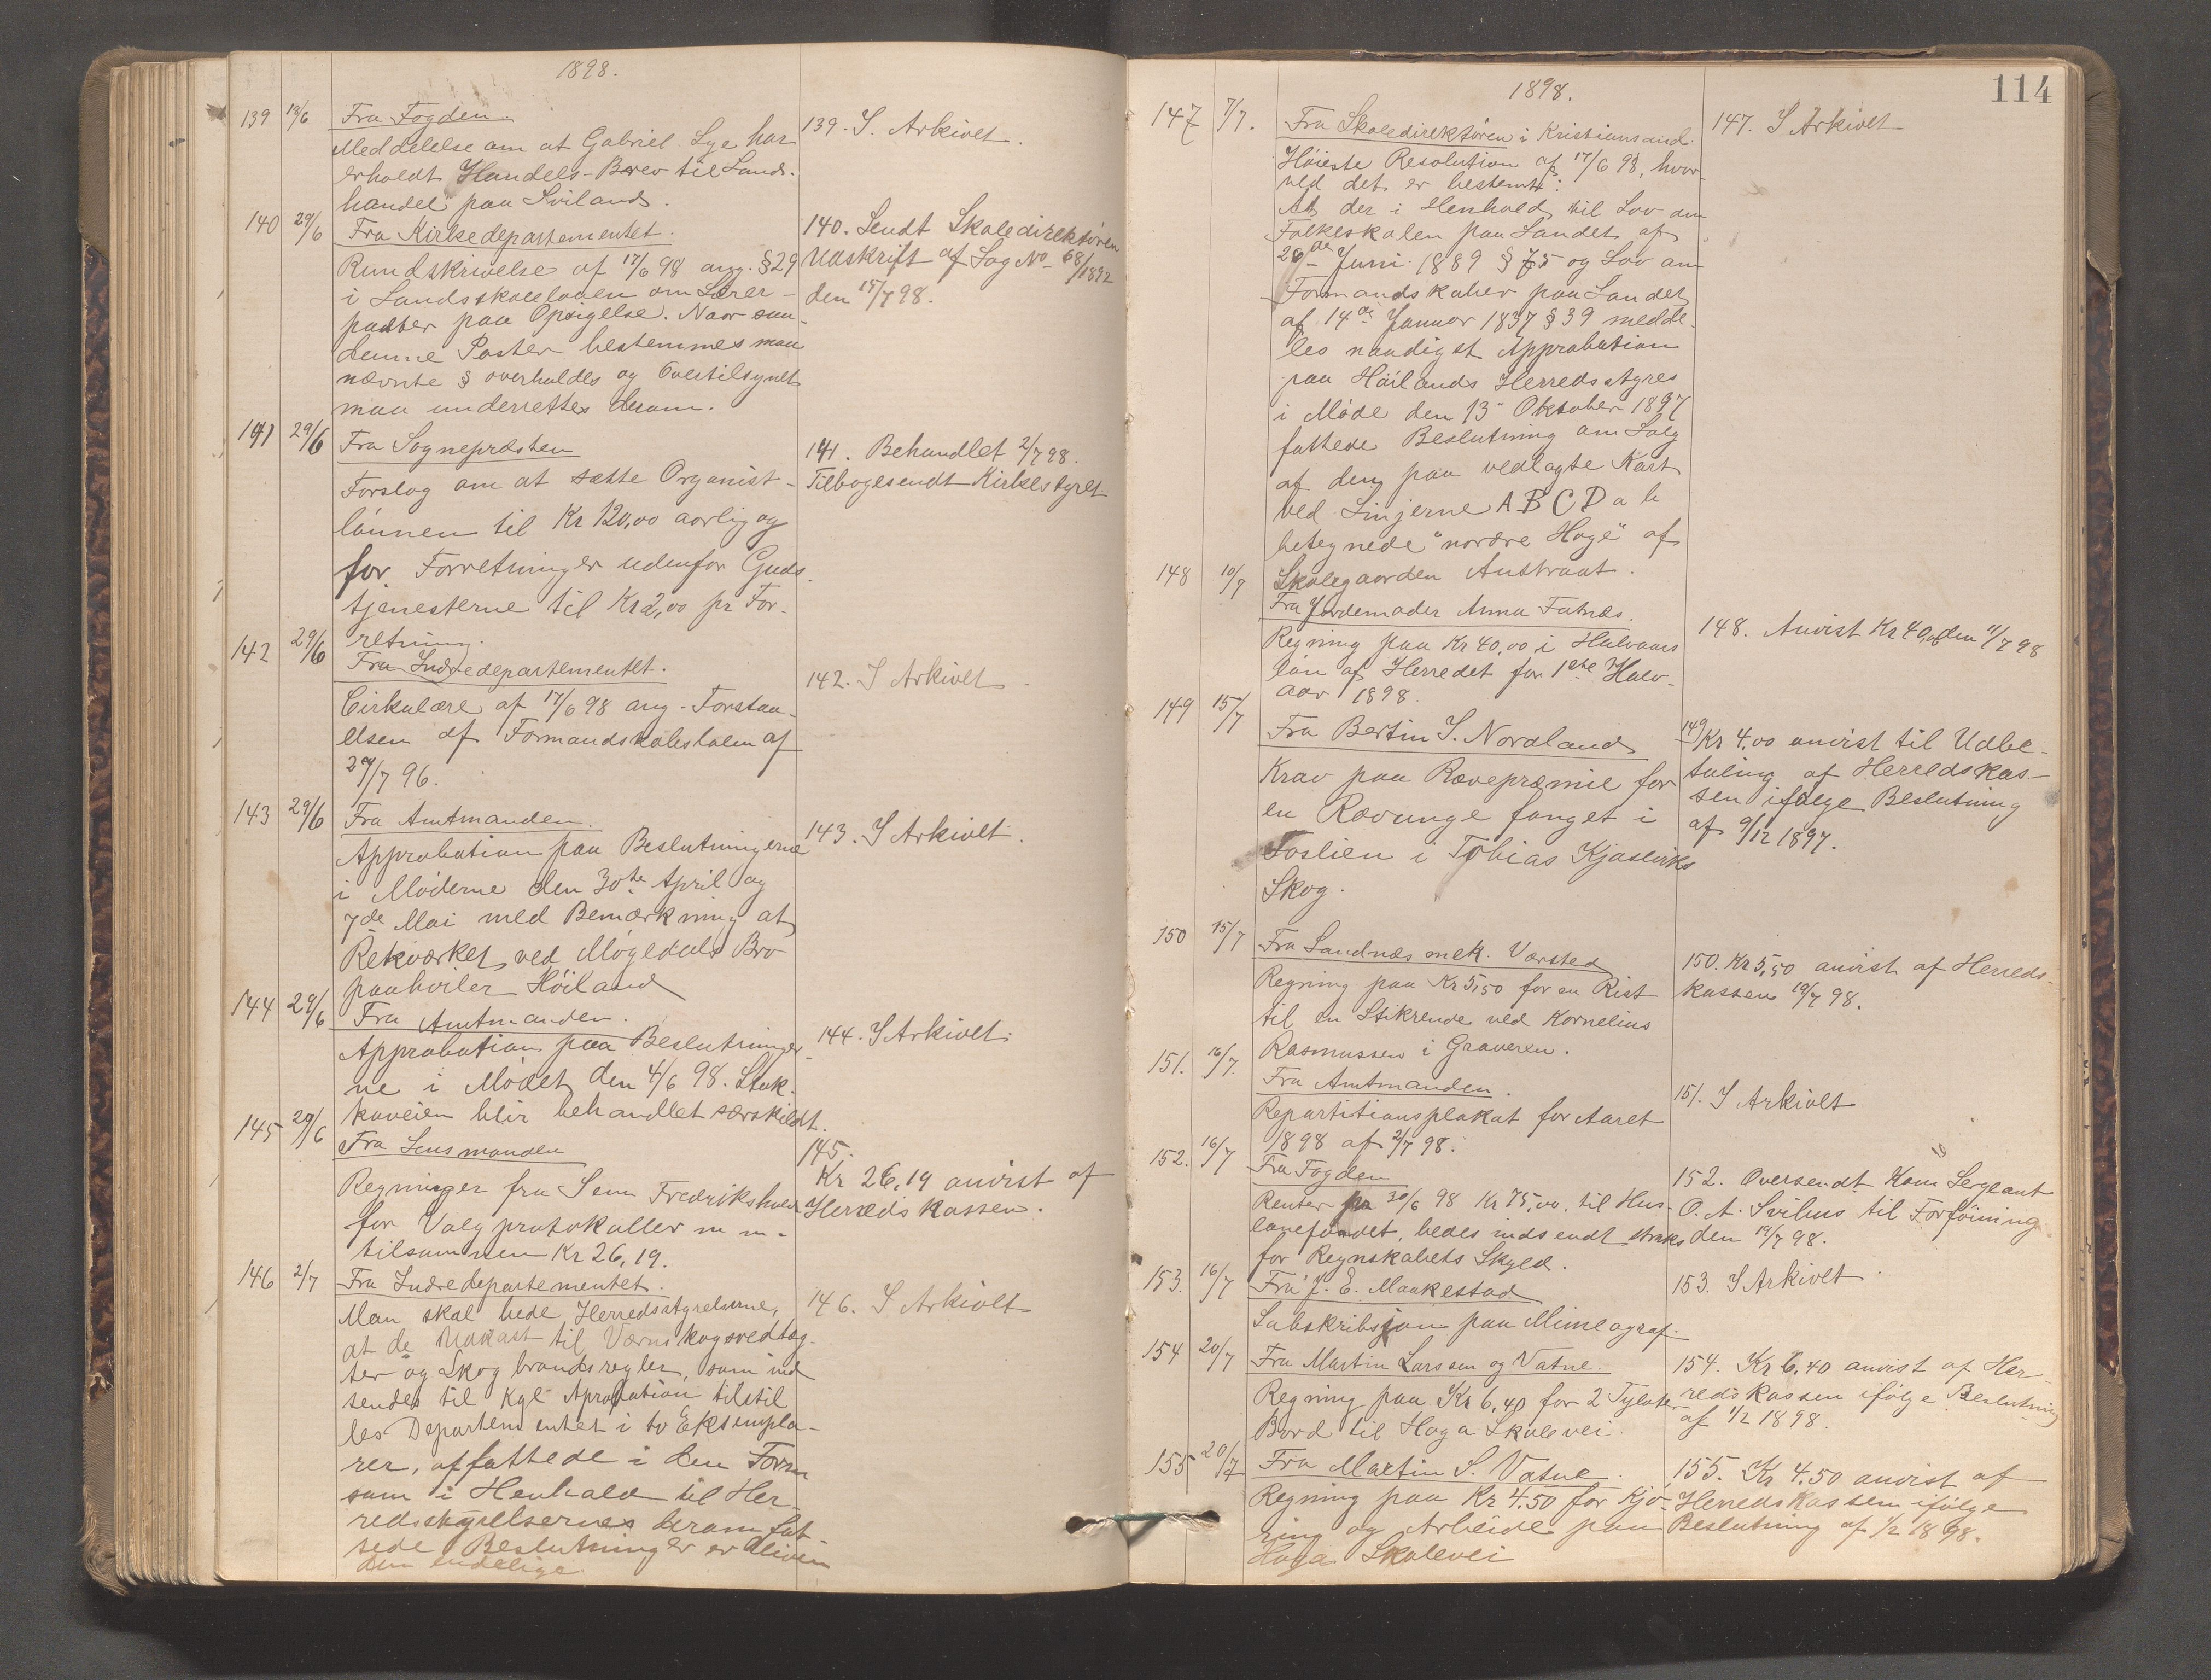 1898.
139 13/6 Fra Fogden.
Meddelelse om at Gabriel Lye har
erholdt Handels-Brev til Land-
handel paa Sviland.
139. I Arkivet.
140 29/6 Fra Kirkedepartementet.
Rundskrivelse af 17/6 98 ang. §29
i Landsskoleloven om Lærer-
poster paa Opsigelse. Naar saa-
danne Poster bestemmes maa
nævnte § overholdes og Overtilsynet
maa underrettes derom.
140. Sendt Skoledirektøren
Udskrift af Sag No 68/1892
den 15/7 98.
141 29/6 Fra Sognepræsten
Forslag om at sætte Organist-
lønnen til Kr 120,00 aarlig og
for Forretninger udenfor Guds-
tjenesterne til Kr 2,00 pr For-
retning.
141. Behandlet 2/7 98.
Tilbagesendt Kirkestyret
142 29/6 Fra Indredepartementet.
Cirkulære af 17/6 98 ang. Forstaa-
elsen af Formandskabsloven af
27/7 96.
142. I Arkivet
143 29/6 Fra Amtmanden.
Approbation paa Beslutningerne
i Møderne den 30te April og
7de Mai med Bemærkning at
Rekværket ved Møgedals Bro
paahviler Høiland
143. I Arkivet.
144 29/6 Fra Amtmanden.
Approbation paa Beslutninger-
ne i Mødet den 4/6 98. Stok-
kaveien blir behandlet særskildt.
144. I Arkivet.
145 29/6 Fra Lensmanden
Regninger fra Senn Fredrikshald
for Valgprotokoller m m.
tilsammen Kr 26,19.
145.
Kr 26,19 anvist af
Herredskassen.
146 2/7 Fra Indredepartementet.
Man skal bede Herredsstyrelserne,
at de Udkast til Værnskogsvedtæg-
ter og Skogbrandsregler, som ind
sendes til Kgl Aprobation tilstil
les Departementet i to Eksempla-
rer, affattede i den Form
som i Henhold til Her-
redsstyrelsernes derom fat-
tede Beslutninger er bleven
den endelige.
146. I Arkivet
114
1898.
147 7/7. Fra Skoledirektøren i Kristiansand.
Høieste Resolution af 17/6 98, hvor-
ved det er bestemt:
At der i Henhold til Lov om
Folkeskolen paa Landet af
26de Juni 1889 § 75 og Lov om
Formandskaber paa Landet
af 14de Januar 1837 § 39 medde-
les naadigst Approbation
paa Høilands Herredsstyres
i Møde den 13 Oktober 1897
fattede Beslutning om Salg
af den paa vedlagte Kart
ved Linjerne A B C D a b
betegnede "nordre Hage" af
Skolegaarden Austraat.
147. I Arkivet
148 10/7 Fra Jordemoder Anna Fatnes.
Regning paa Kr 40,00 i Halvaars
løn af Herredet for 1ste Halv-
aar 1898.
148. Anvist Kr 40,00 den 11/7 98
149 15/7 Fra Bertin S. Nordland
Krav paa Rævepræmie for
en Rævunge fanget i
Foslien i Tobias Kjosviks
Skog.
149 Kr 4.00 anvist til Udbe-
taling af Herredskas-
sen ifølge Beslutning
af 9/12 1897.
150 15/7 Fra Sandnæs mek. Værsted
Regning paa Kr 5,50 for en Rist
til en Stikrende ved Kornelius
Rasmussen i Graveren.
150. Kr 5,50 anvist af Herreds-
kassen 19/7 98.
151. 16/7. Fra Amtmanden.
Repartitionsplakat for Aaret
1898 af 2/7 98.
151. I Arkivet
152. 16/7 Fra Fogden
Renter pr 30/6 98 Kr 75,00 til Hus-
lånefondet, bedes indsendt straks
for Regnskabets Skyld.
152. Oversendt Kom Sergeant
O. A. Svihus til Forføining
den 19/7 98.
153. 16/7 Fra J. E. Maakestad
Subskribsjon paa Mimeograf.
153. I Arkivet.
154 20/7 Fra Martin Larssen og Vatne.
Regning paa Kr 6,40 for 2 Tylvter
Bord til Hoga Skolevei.
154. Kr 6,40 anvist af Her-
redskassen ifølge Beslutning
af 1/2 1898.
155 20/7 Fra Martin S. Vatne.
Regning paa Kr 4.50 for Kjø-
ring og Arbeide paa
Hoga Skolevei
155. Kr 4.50 anvist af
Herredskassen ifølge
Beslutning af 1/2 1898.